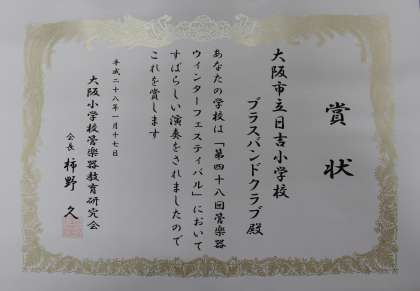 賞状
大阪市立日吉小学校
ブラスバンドクラブ殿
あなたの学校は「第四十八回管楽器
ウィンターフェスティバル」において
すばらしい演奏をされましたので
これを賞します
平成二十八年一月十七日
大阪小学校管楽器教育研究会
会長 柿野 久